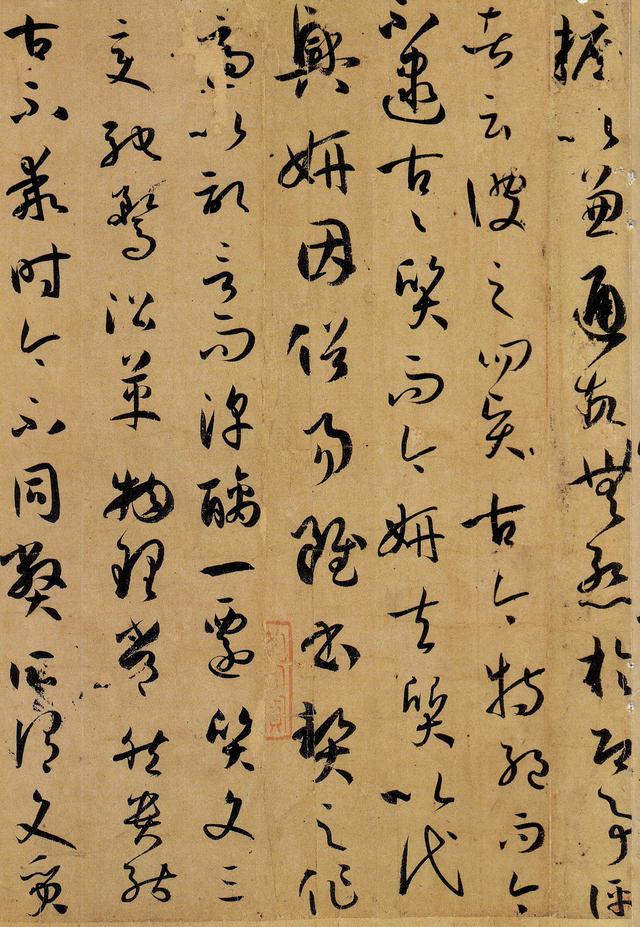 摧以兼通故無慙於即事評
者云彼之四賢古今特絕而今
不逮古〻質而今妍夫質以代
興妍因俗易雖書契之作
適以記言而淳醨一遷質文三
變馳騖沿革物理常然貴能
古不乖時今不同弊所謂文質